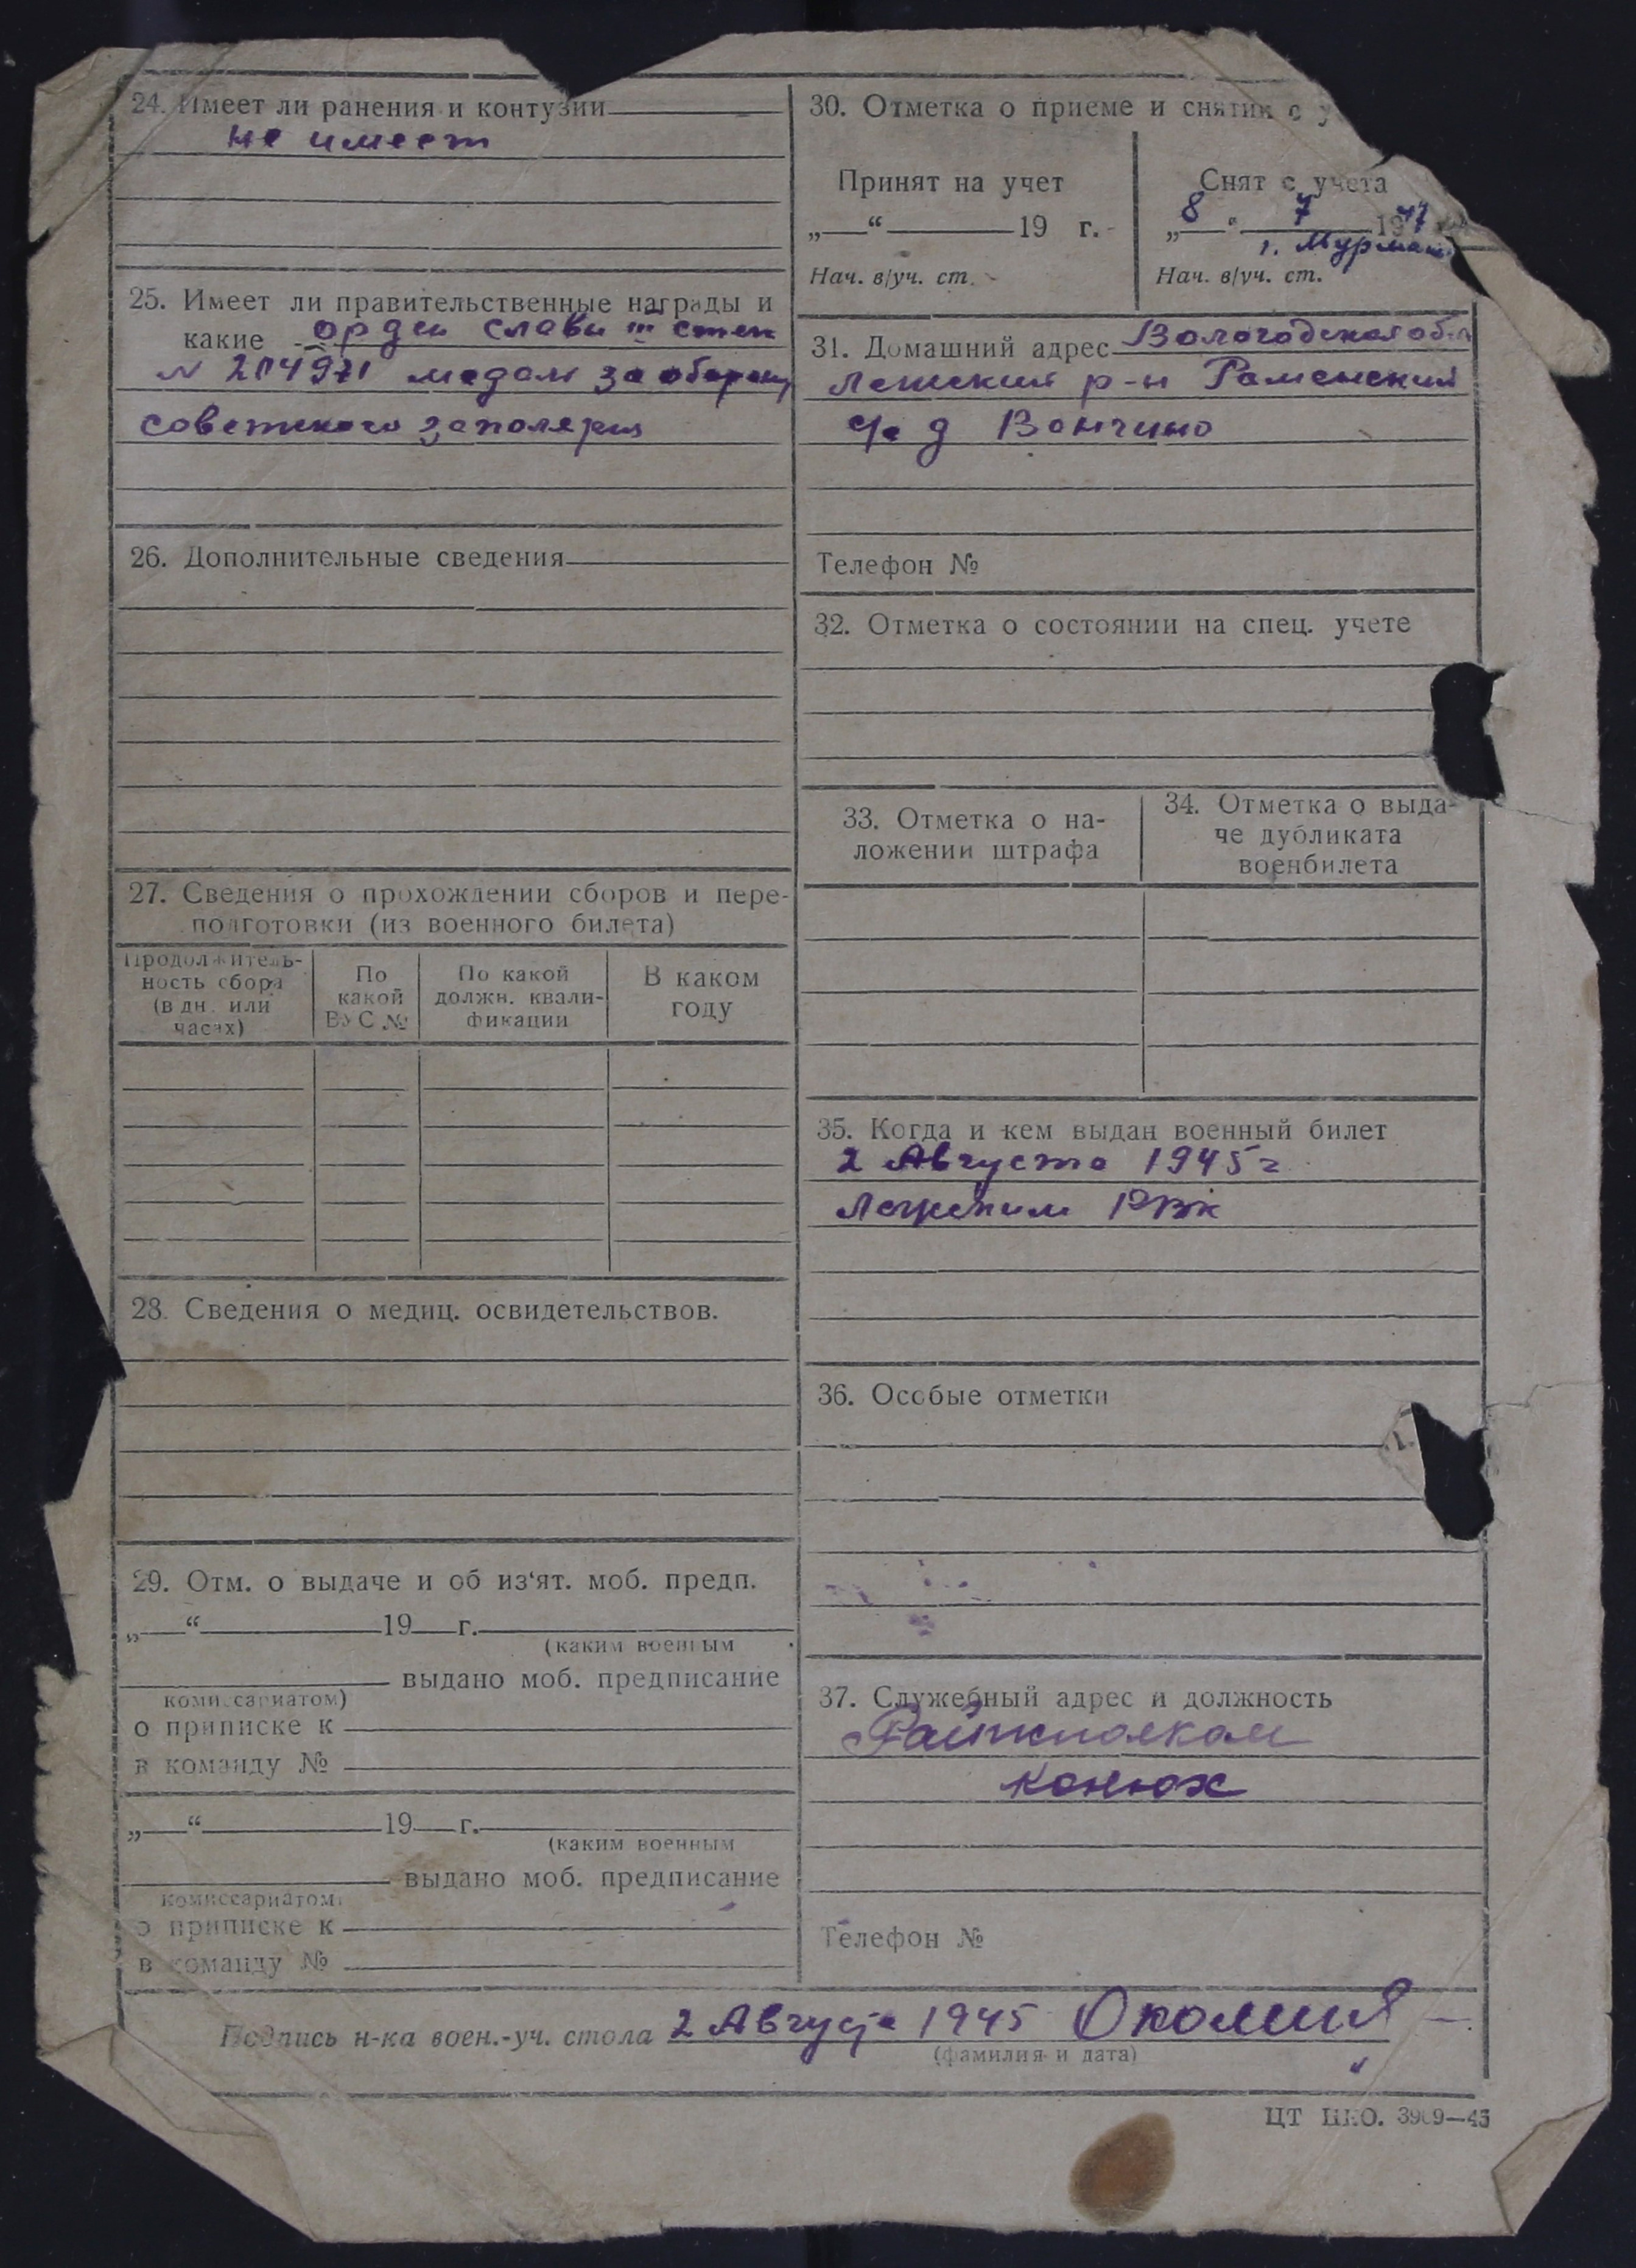 24. Имеет ли ранения и контузии
не имеет
25. Имеет ли правительственные награды и
какие орден славы III степ
N 204971 медаль за оборону
советского заполярия
26. Дополнительные сведения
27. Сведения о прохождении сборов и пере-
подготовки (из военного билета)
Продолжитель-
ность сбора
(в дн. или
часах)
По
какой
ВУС №
По какой
должн. квали-
фикации
В каком
году
28. Сведения о медиц. освидетельствов.
29. Отм. о выдаче и об из‘ят. моб. предп.
„ “ 19 г.
(каким военным
выдано моб. предписание
комиссариатом)
о приписке к
в команду №
„ “ 19 г.
(каким военным
выдано моб. предписание
комиссариатом)
о приписке к
в команду №
30. Отметка о приеме и снятии с у
Принят на учет
„ “ 19 г.
Нач. в/уч. ст.
Снят с учета
„8“ 7 1947
г. Мурманс
Нач. в/уч. ст.
31. Домашний адрес Вологодская обл
Лежский р-н Раменский
с/с д Вончино
Телефон №
32. Отметка о состоянии на спец. учете
33. Отметка о на-
ложении штрафа
34. Отметка о выда-
че дубликата
военбилета
35. Когда и кем выдан военный билет
2 Августа 1945 г
Лежским РВК
36. Особые отметки
37. Служебный адрес и должность
Райисполком
конюх
Телефон №
Подпись н-ка воен.-уч. стола 2 Августа 1945
(фамилия и дата)
ЦТ НКО. 3909—45